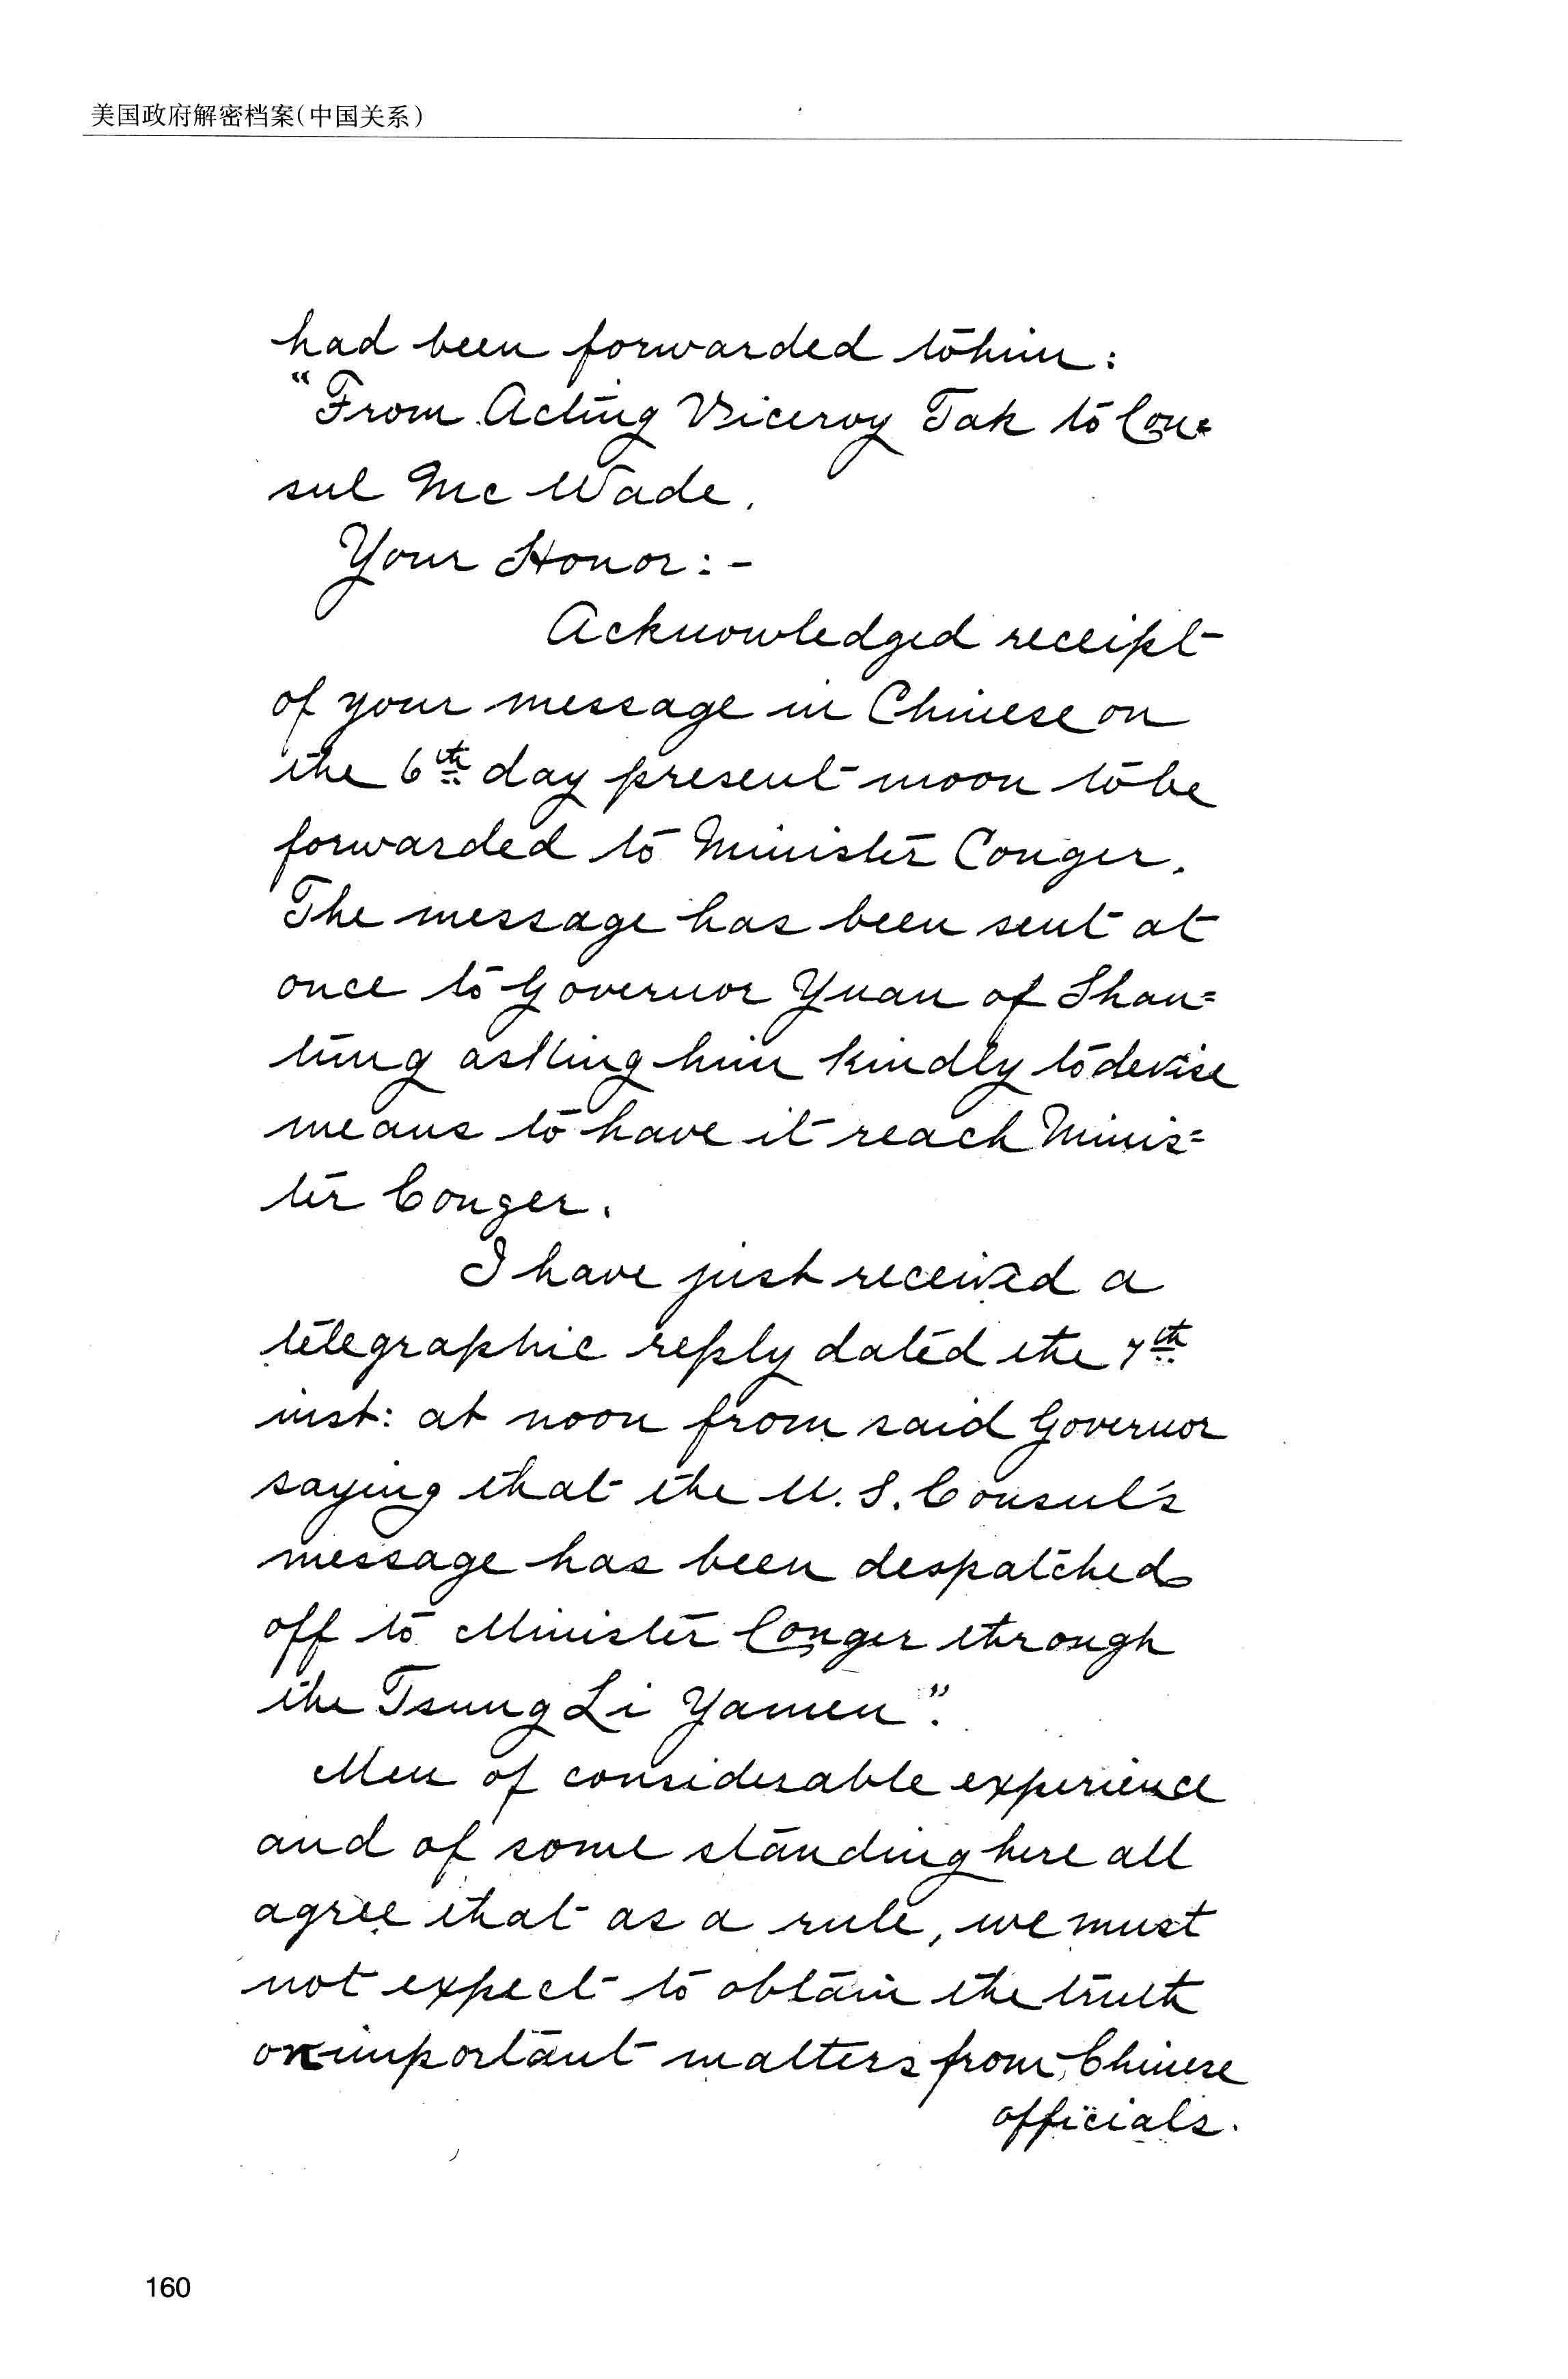 美国政府解密档案(中国关系)
had been forwarded to him:
"From Acting Viceroy Tak to Con=
sul McWade.
Your Honor:-
Acknowledged receipt
of your message in Chinese on
the 6th day present moon to be
forwarded to Minister Conger.
The message has been sent at
once to Governor Yuan of Shan=
tung asking him kindly to devise
means to have it reach Minis=
ter Conger.
I have just received a
telegraphic reply dated the 7th
inst: at noon from said Governor
saying that the U.S. Consul's
message has been despatched
off to Minister Conger through
the Tsung Li Yamen".
Men of considerable experience
and of some standing here all
agree that as a rule, we must
not expect to obtain the truth
on important matters from Chinese
officials.
160